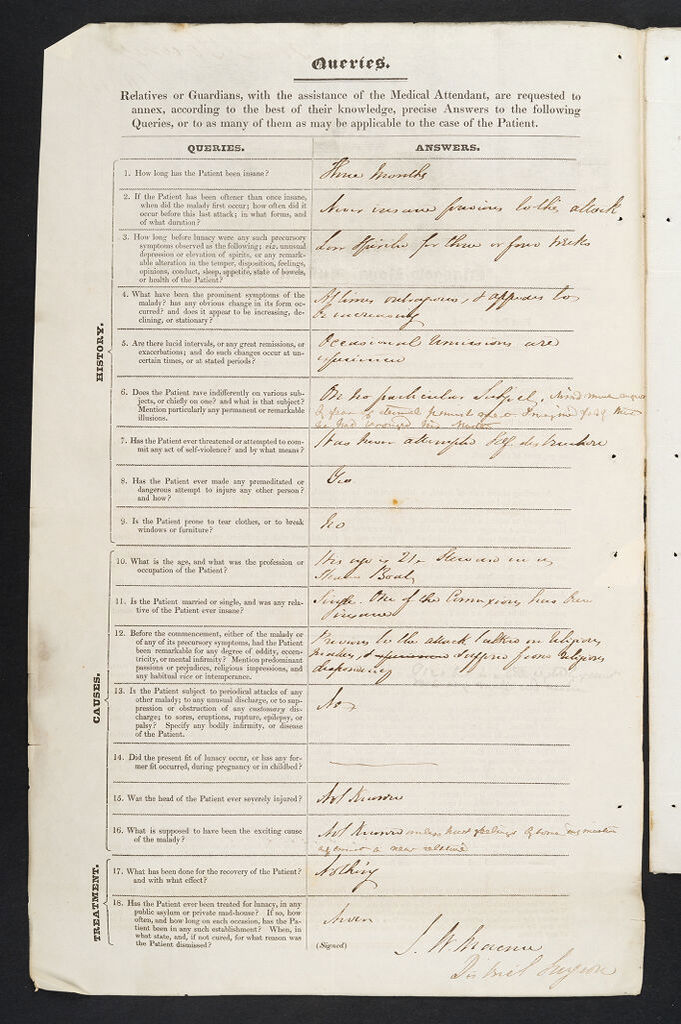 Queries.
Relatives or Guardians, with the assistance of the Medical Attendant, are requested to
annex, according to the best of their knowledge, precise Answers to the following
Queries, or to as many of them as may be applicable to the case of the Patient.
QUERIES.
ANSWERS.
HISTORY.
1. How long has the Patient been insane?
Three Months
2. If the Patient has been oftener than once insane,
when did the malady first occur; how often did it
occur before this last attack; in what forms, and
of what duration?
Never insane previous to this attack
3. How long before lunacy were any such precursory
symptoms observed as the following; viz. unusual
depression or elevation of spirits, or any re-
markable alteration in the temper, disposition, feelings,
opinions, conduct, sleep, appetite, state of bowels,
or health of the Patient?
Low Spirits for three or four weeks
4. What have been the prominent symptoms of the
malady? has any obvious change in its form oc-
curred? and does it appear to be increasing, de-
clining, or stationary?
At times outrageous, & appears to
be increasing
5. Are there lucid intervals, or any great remissions, or
exacerbations; and do such changes occur at un-
certain times, or at stated periods?
Occasional remissions are
6. Does the Patient rave indifferently on various sub-
jects, or chiefly on one? and what is that subject?
Mention particularly any permanent or remarkable
illusions.
On no particular Subject.
of fear of eternal
he had
7. Has the Patient ever threatened or attempted to com-
mit any act of self-violence? and by what means?
Has never attempted Self destruction
8. Has the Patient ever made any premeditated or
dangerous attempt to injure any other person?
and how?
9. Is the Patient prone to tear clothes, or to break
windows or furniture?
No
CAUSES.
10. What is the age, and what was the profession or
occupation of the Patient?
His age is 21. Steward in a
Steam Boat
11. Is the Patient married or single, and was any rela-
tive of the Patient ever insane?
Single. One of the Connexions has been
insane
12. Before the commencement, either of the malady or
of any of its precursory symptoms, had the Patient
been remarkable for any degree of oddity, eccen-
tricity, or mental infirmity? Mention predominant
passions or prejudices, religious impressions, and
any habitual vice or intemperance.
Previous to the attack talked on religious
from religious
despondency
13. Is the Patient subject to periodical attacks of any
other malady; to any unusual discharge, or to sup-
pression or obstruction of any customary dis-
charge; to sores, eruptions, rupture, epilepsy, or
palsy? Specify any bodily infirmity, or disease
of the Patient.
No
14. Did the present fit of lunacy occur, or has any for-
mer fit occurred, during pregnancy or in childbed?
15. Was the head of the Patient ever severely injured?
Not Known
16. What is supposed to have been the exciting cause
of the malady?
Not Known unless hurt feelings of some
against a near relative
TREATMENT.
17. What has been done for the recovery of the Patient?
and with what effect?
Nothing
18. Has the Patient ever been treated for lunacy, in any
public asylum or private mad-house? If so, how
often, and how long on each occasion, has the Pa-
tient been in any such establishment? When, in
what state, and, if not cured, for what reason was
the Patient dismissed?
Never
(Signed)
District Surgeon